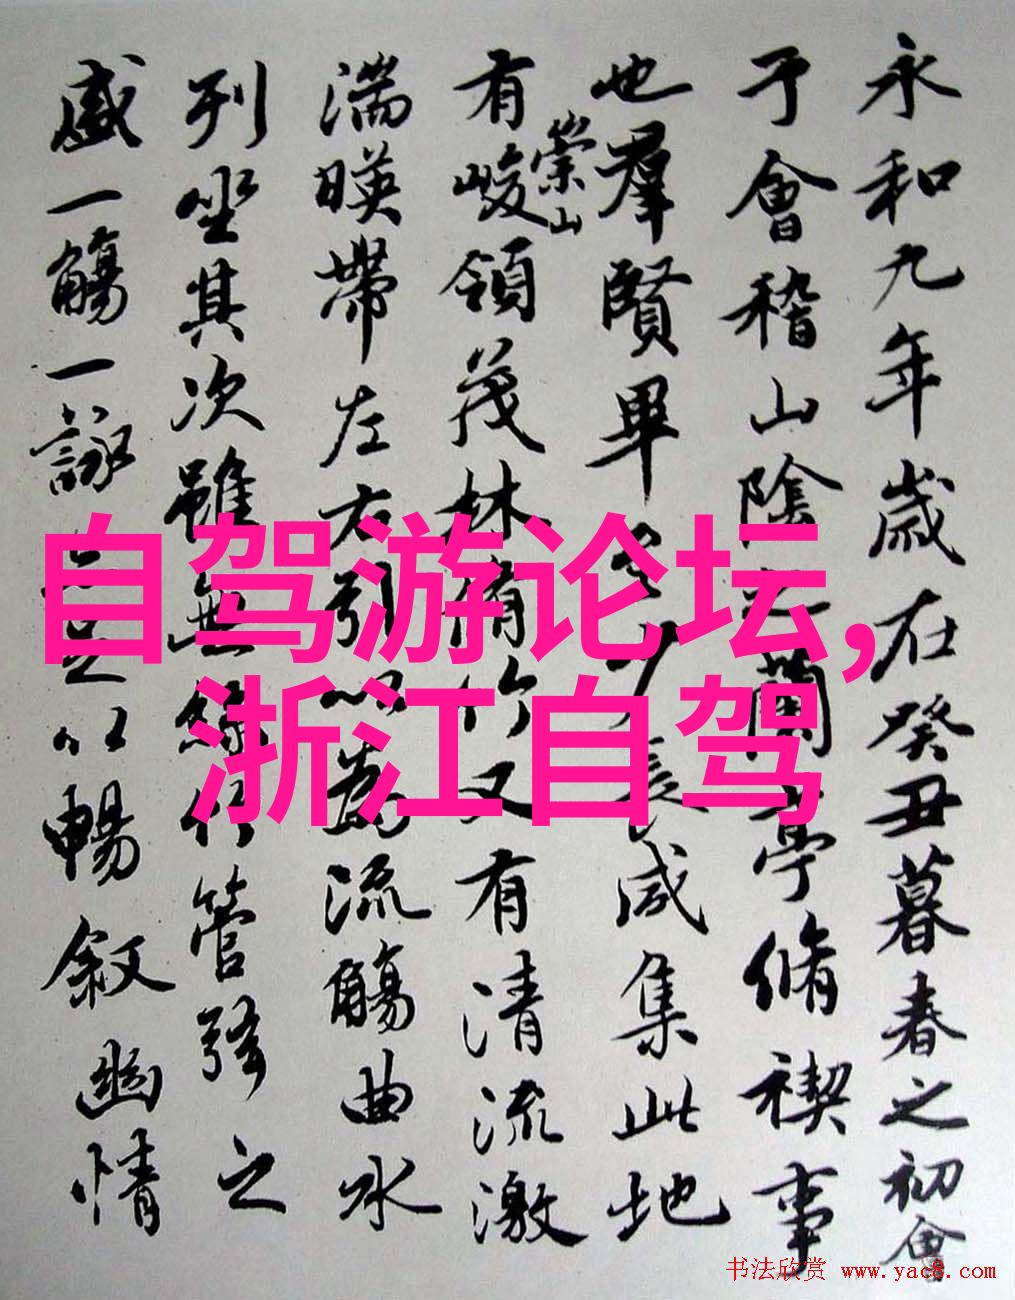 永和九年歲在癸丑暮春之初會
于會稽山陰之蘭亭脩禊事
也羣賢畢至少長咸集此地
有崇山峻領茂林脩竹又有清流激
湍暎帶左右引以為流觴曲水
列坐其次雖無絲竹管弦之
盛一觴一詠以暢叙幽情
自驾游论坛,
浙江自驾
书法欣赏 www.yac8.com